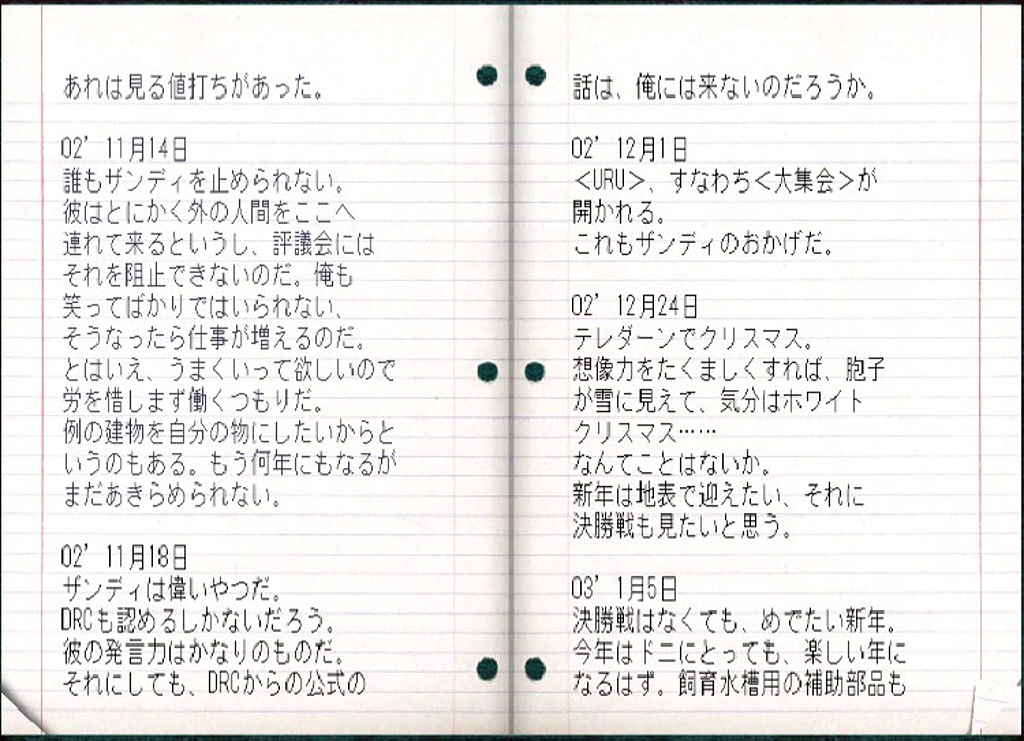 あれは見る値打ちがあった。
02’ 11月14日
誰もザンディを止められない。
彼はとにかく外の人間をここへ
連れて来るというし、評議会には
それを阻止できないのだ。俺も
笑ってばかりではいられない、
そうなったら仕事が増えるのだ。
とはいえ、うまくいって欲しいので
労を惜しまず働くつもりだ。
例の建物を自分の物にしたいからと
いうのもある。もう何年にもなるが
まだあきらめられない。
02’ 11月18日
ザンディは偉いやつだ。
DRCも認めるしかないだろう。
彼の発言力はかなりのものだ。
それにしても、DRCからの公式の
話は、俺には来ないのだろうか。
02’ 12月1日
<URU>、すなわち<大集会>が
開かれる。
これもザンディのおかげだ。
02’ 12月24日
テレダーンでクリスマス。
想像力をたくましくすれば、胞子
が雪に見えて、気分はホワイト
クリスマス……
なんてことはないか。
新年は地表で迎えたい、それに
決勝戦も見たいと思う。
03’ 1月5日
決勝戦はなくても、めでたい新年。
今年はドニにとっても、楽しい年に
なるはず。飼育水槽用の補助部品も